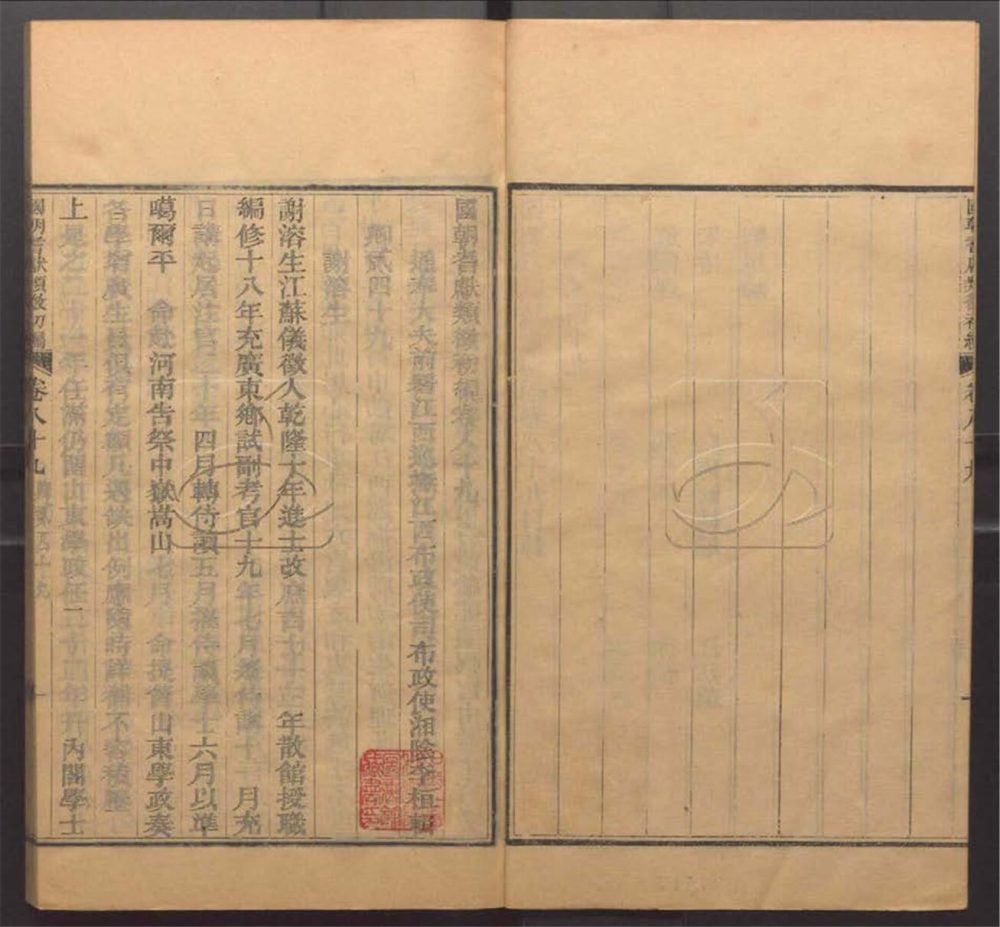 國朝耆獻類徵初編卷八十九
國朝耆獻類徵初編卷八十九
通奉大夫前署江西巡撫江西布政使司布政使湘陰李桓輯
卿貳四十九
謝溶生
謝溶生江蘇儀徵人乾隆十年進士改庶吉士十三年散館授職
編修十八年充廣東鄉試副考官十九年七月遷侍講十二月充
日講起居注官二十年四月轉侍讀五月擢侍讀學士六月以準
噶爾平 命赴河南告祭中嶽嵩山七月 命提督山東學政奏
各學增廣生員俱有定額凡遇缺出例應隨時詳補不容積壓
上是之二十一年任滿仍留山東學政任二十四年升內閣學士
國朝耆獻類徵初編 卷八十九 卿貳四十九 一